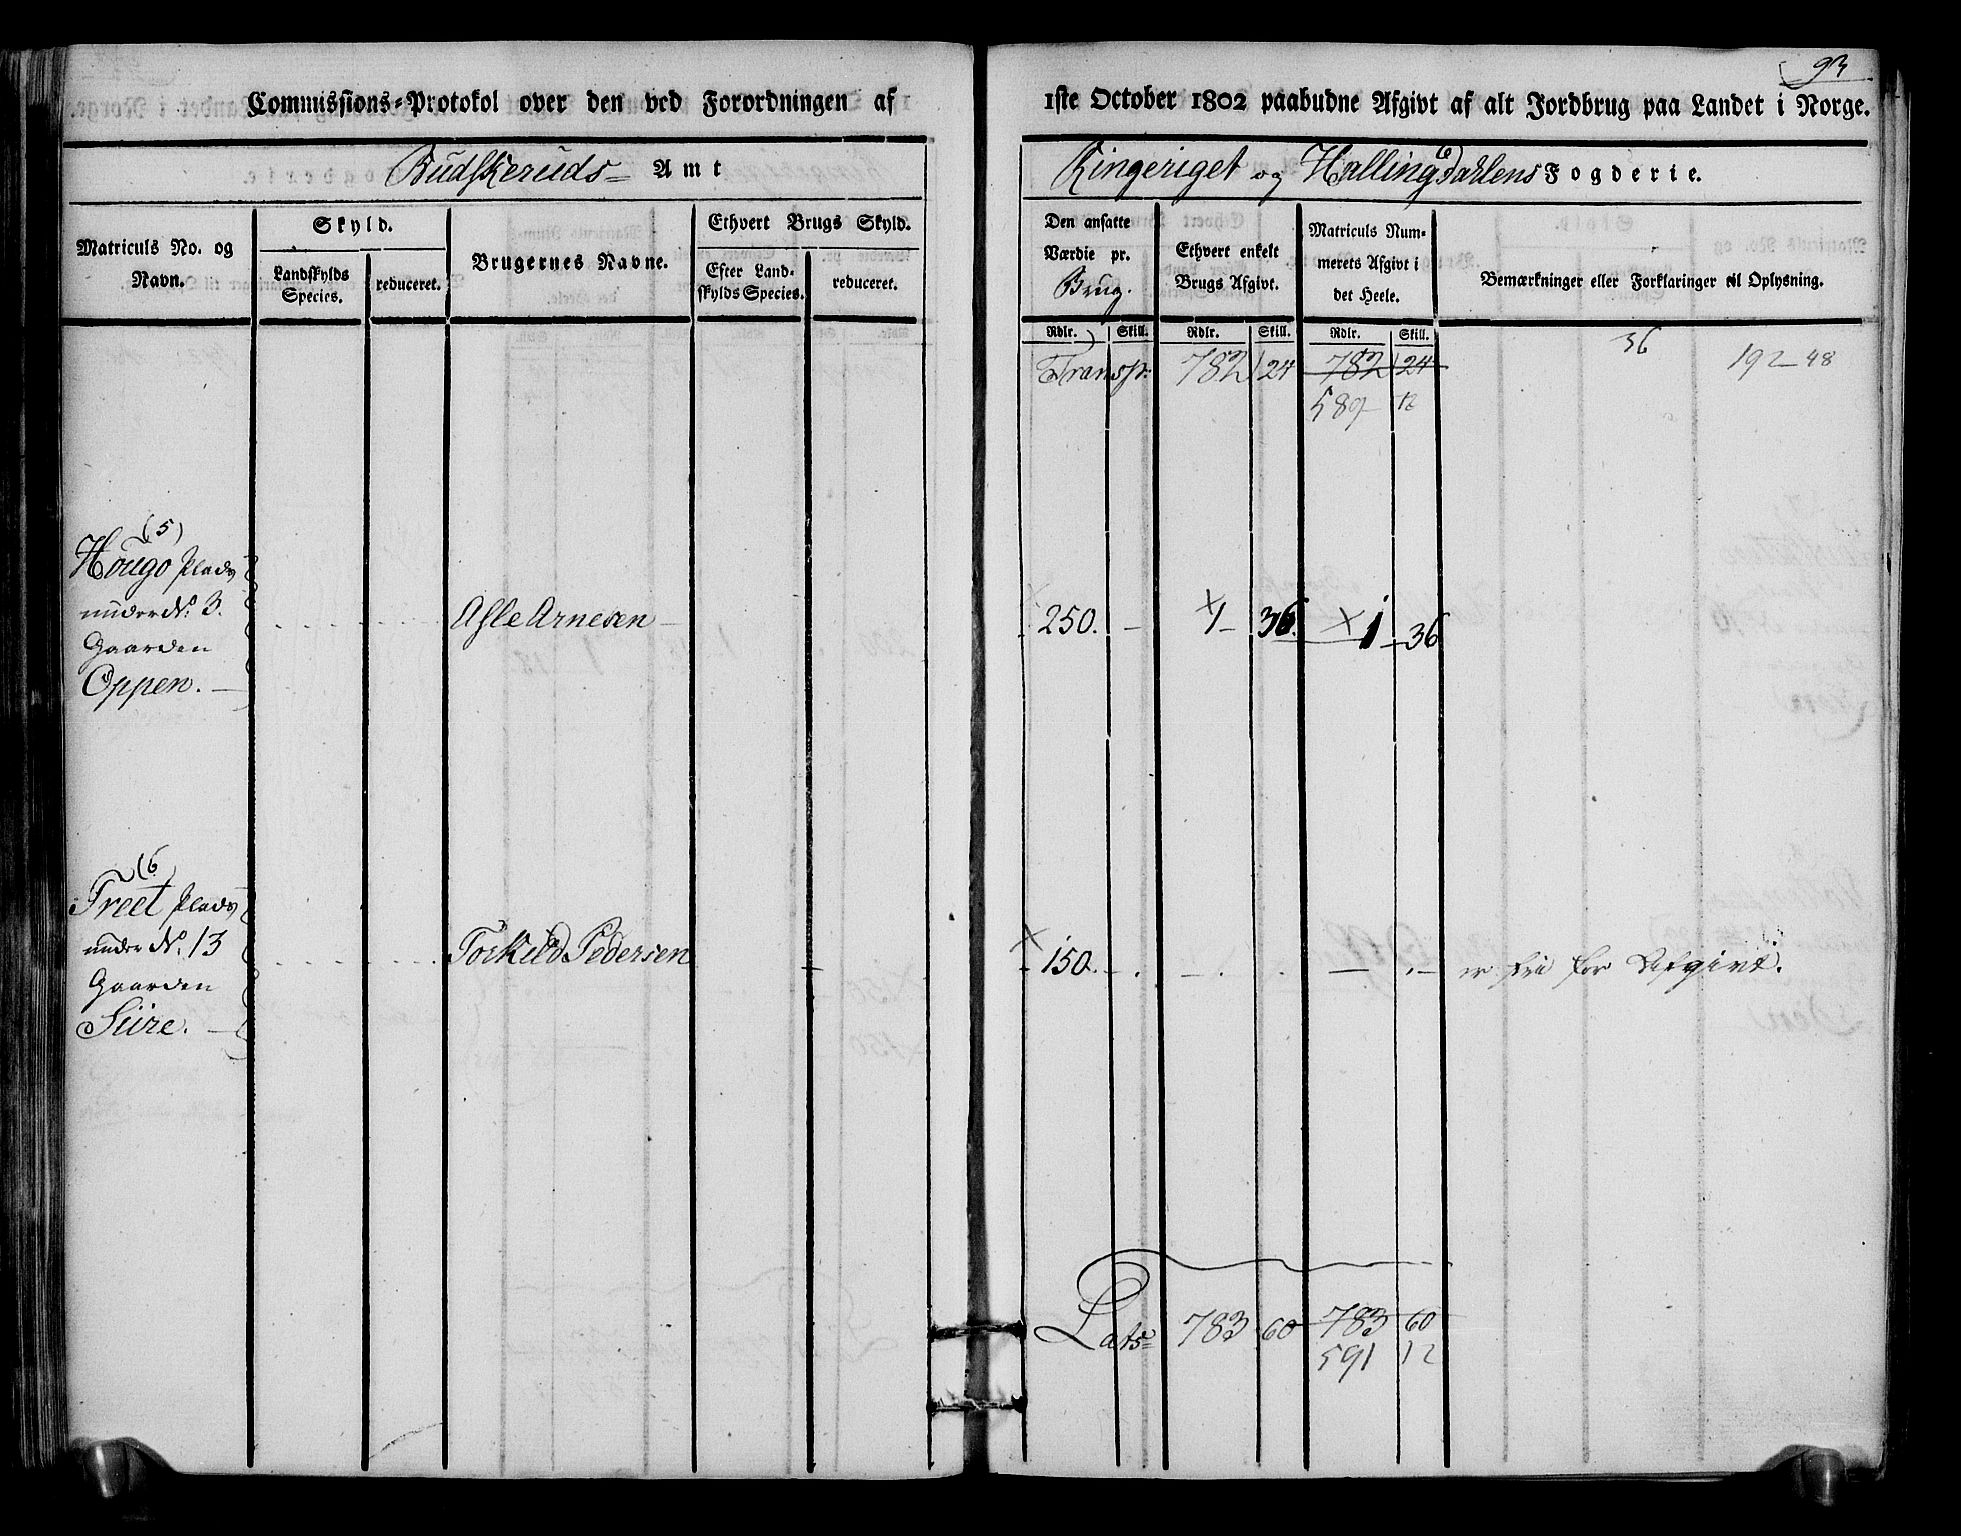 93
Commissions-Protokol over den ved Forordningen af 1ste October 1802 paabudne Afgivt af alt Jordbrug paa Landet i Norge.
Budskeruds Amt
Ringeriget og Hallingdahlens Fogderie.
Matriculs No. og Navn.
Skyld.
Landskylds Species.
reduceret.
Brugernes Navne.
Ethvert Brugs Skyld.
Efter Landskylds Species.
reduceret.
Den ansatte Værdie pr. Brug.
Ethvert enkelt Brugs Afgivt.
Matriculs Nummerets Afgivt i det Heele.
Bemærkninger eller Forklaringer til Oplysning.
Rdlr. Skill. Rdlr. Skill. Rdlr. Skill.
36
Transp: 782 24 782 24 192-48
589 12
(5)
Hougo Plads
under No. 3.
Gaarden
Oppen.
Asle Arnesen 250. - 1 36. 1 36
(6)
Treet Plads
under No. 13
Gaarden
Siire.
Torkild Pedersen 150. - er frie for Afgivt.
Lats 783 60 783 60
591 12